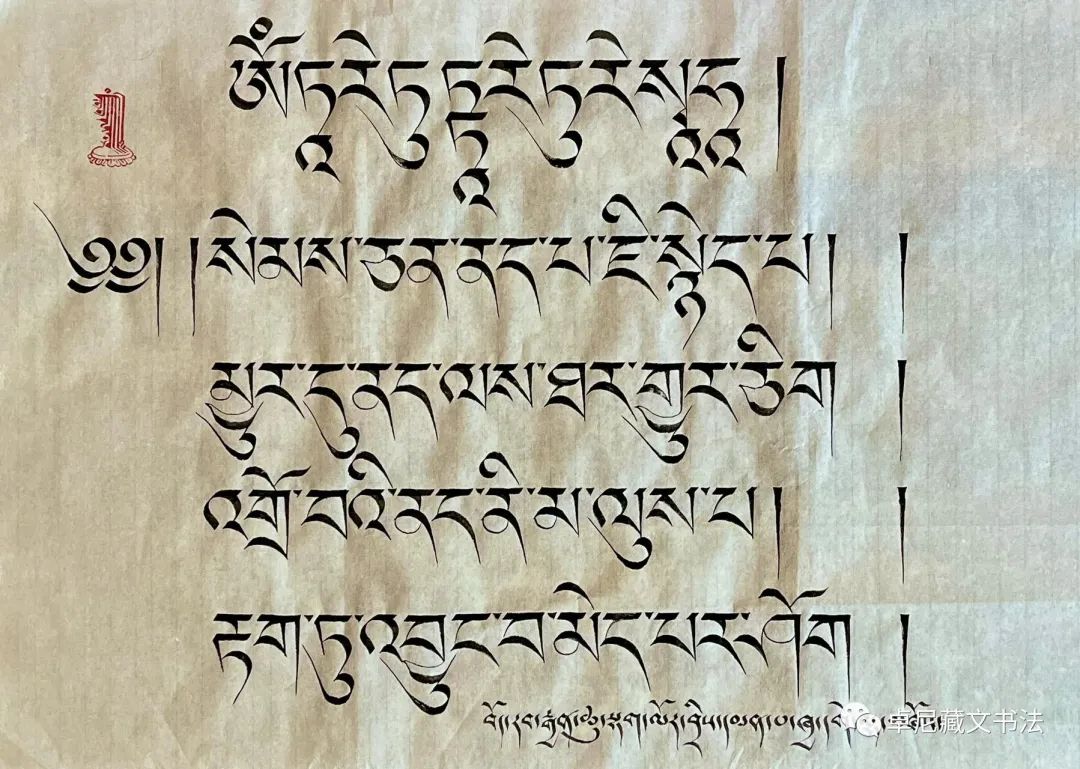 ༀ་ཏཱ་རེ་ཏུཏྟཱ་རེ་ཏུ་རེ་སྭཱ་ཧཱ །
༄༅། །སེམས་ཅན་ནད་པ་ཇི་སྙེད་པ། །
མྱུར་དུ་ནད་ལས་ཐར་གྱུར་ཅིག །
འགྲོ་བའི་ནད་ནི་མ་ལུས་པ། །
རྟག་ཏུ་འབྱུང་བ་མེད་པར་ཤོག །
卓尼藏文书法